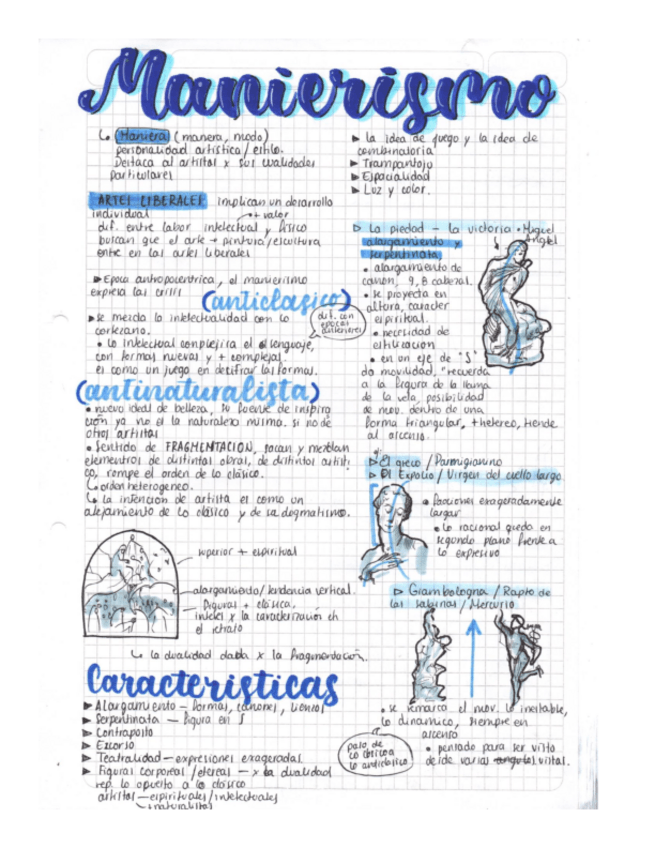 Manierismo
Maniera (manera, modo)
personalidad artística/estilo.
Destaca al artistas x sus cualidades
particulares
ARTES LIBERALES implican un desarrollo
individual
+ valor
dif. entre labor intelectual y físico
buscan que el arte + pintura/escultura
entre en las artes liberales
► Epoca antropocentrica, el manierismo
expresa las crisis
(anticlasico)
dif. con
epocas
anteriores
► se mezcla lo intelectualidad con lo
cortezano.
• lo intelectual complejiza el lenguaje,
con formas nuevas y + complejas.
es como un juego en decifrar las formas.
(antinaturalista)
• nuevo ideal de belleza, su fuente de inspira
ción ya no es la naturaleza misma. si no de
otros artistas
• sentido de FRAGMENTACION, sacan y mezclan
elementros de distintas obras, de distintos artisti
co, rompe el orden de lo clásico.
orden heterogeneo.
la intención de artista es como un
alejamiento de lo clásico y de sa dogmatismo.
superior + espiritual
alargamiento/tendencia vertical.
Figuras + clásica,
interes x la caracterización en
el retrato
la dualidad dada x la fragmentación.
Caracteristicas
► Alargamiento — formas, canones,
► Serpentinata — figura en S
► Contraposto
► Escorso
► Teatralidad — expresiones exageradas
► Figuras corporeas/etereas — x la dualidad
rep. lo opuesto a lo clásico
artistas — espirituales/intelectuales
naturalistas
► la idea de juego y la idea de
combinatoria
► Trampantojo
► Espacialidad
► Luz y color.
▷ La piedad – la victoria • Miguel
Angel
alargamiento y
serpentinata,
• alargamiento de
canon, 9, 8 cabezas.
• se proyecta en
altura, caracter
espiritual.
• necesidad de
estilización
• en un eje de "S"
da movilidad, "recuerda
a la figura de la llama
de la vela, posibilidad
de mov. dentro de una
forma triangular, + hetereo, tiende
al ascenso.
▷ El greco / Parmigianino
▷ El Expolio / Virgen del cuello largo
• facciones exageradamente
largas
• lo racional queda en
segundo plano frente a
lo expresivo
▷ Giambologna / Rapto de
las sabinas / Mercurio
• se remarca el mov. lo inestable,
lo dinamico, siempre en
ascenso
• pensado para ser visto
desde varias angulos vistas.
paso de
lo clásico a
lo anticlásico